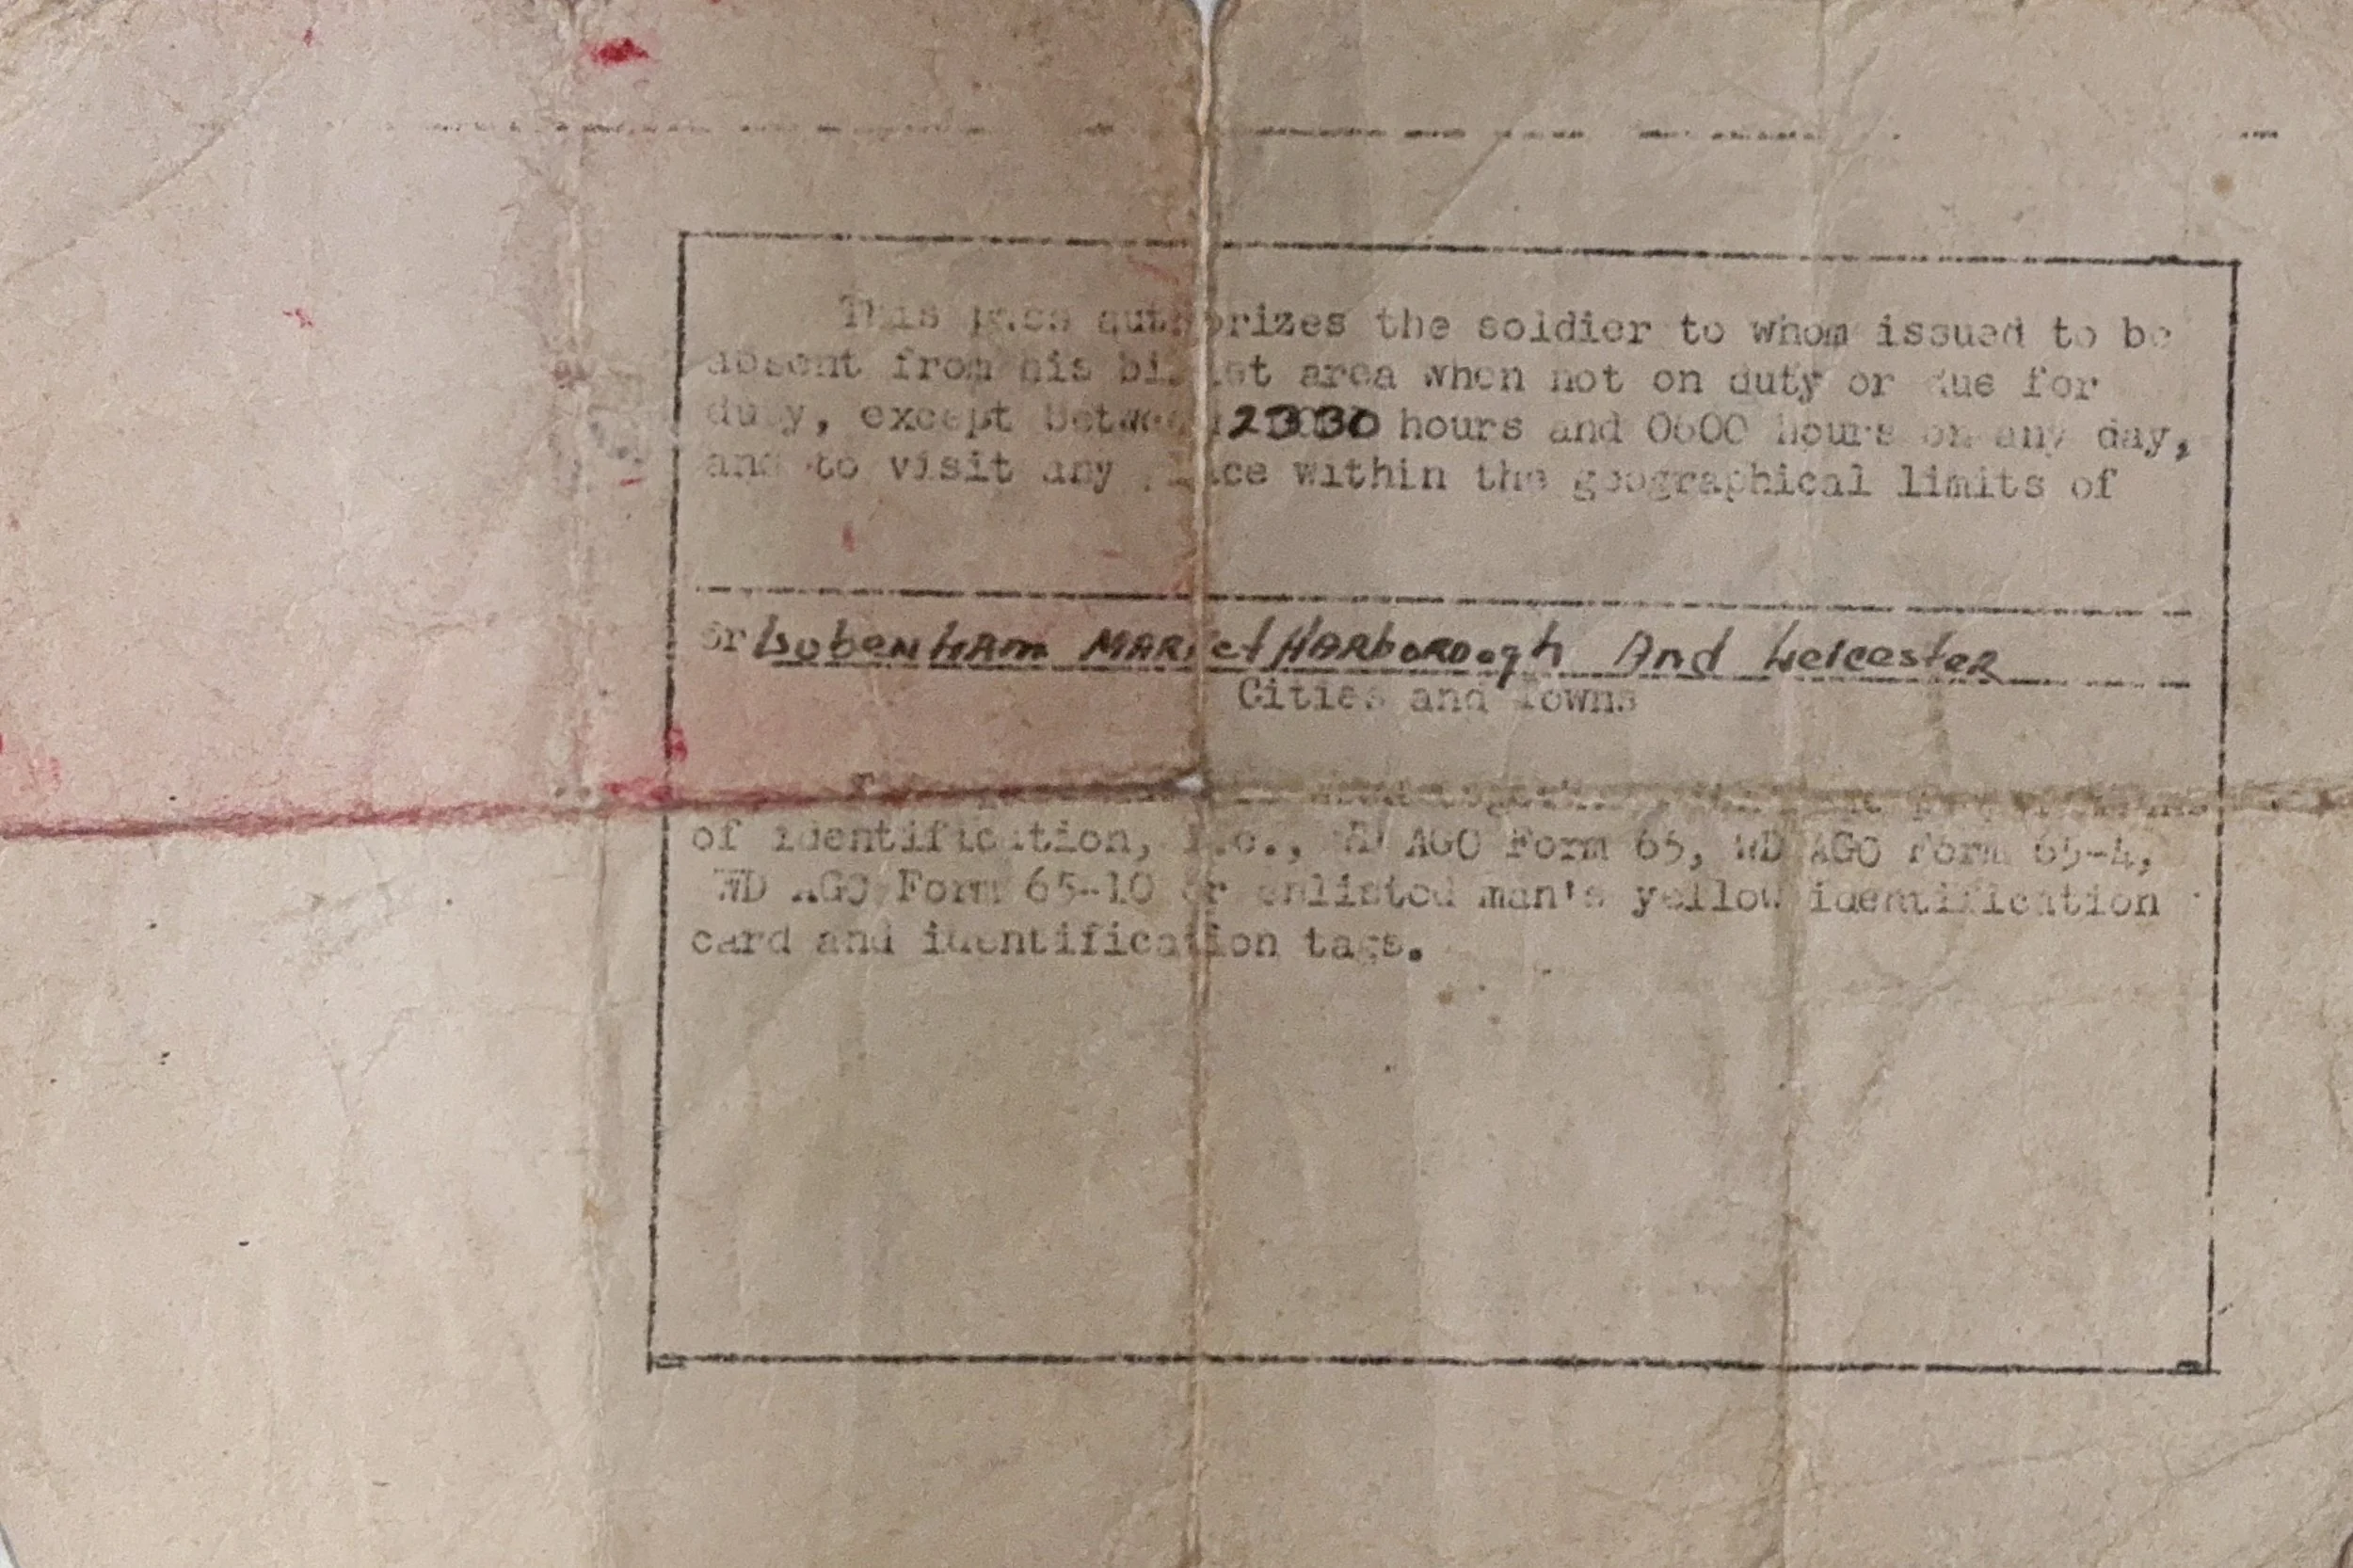 This pass authorizes the soldier to whom issued to be
absent from his billet area when not on duty or due for
duty, except between 2330 hours and 0600 hours on any day,
and to visit any place within the geographical limits of
or Lubenham Market Harborough And Leicester
Cities and Towns
of identification, i.e., WD AGO Form 65, WD AGO Form 65-4,
WD AGO Form 65-10 or enlisted man's yellow identification
card and identification tags.